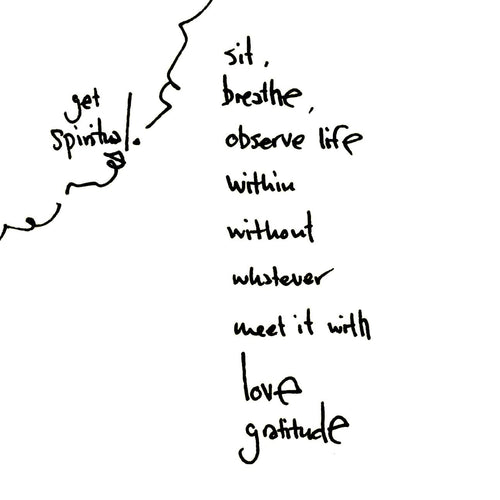 get
spiritual.
sit,
breathe,
observe life
within
without
whatever
meet it with
love
gratitude